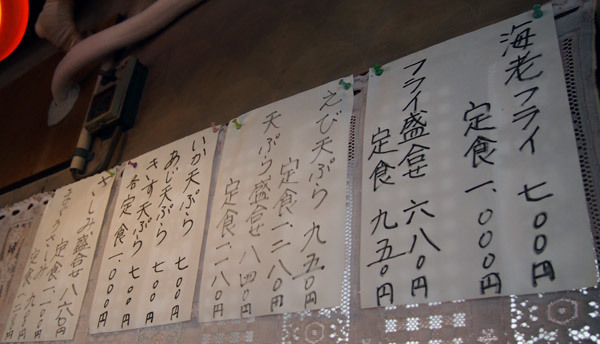 海老フライ 七〇〇円
定食 一、〇〇〇円
フライ盛合せ 六八〇円
定食 九五〇円
えび天ぷら 九五〇円
定食 一二八〇円
天ぷら盛合せ 八四〇円
定食 一一八〇円
いか天ぷら 七〇〇円
あじ天ぷら 七〇〇円
きす天ぷら 七〇〇円
各定食 一、〇〇〇円
さしみ盛合せ 八六〇円
定食 一一〇〇円